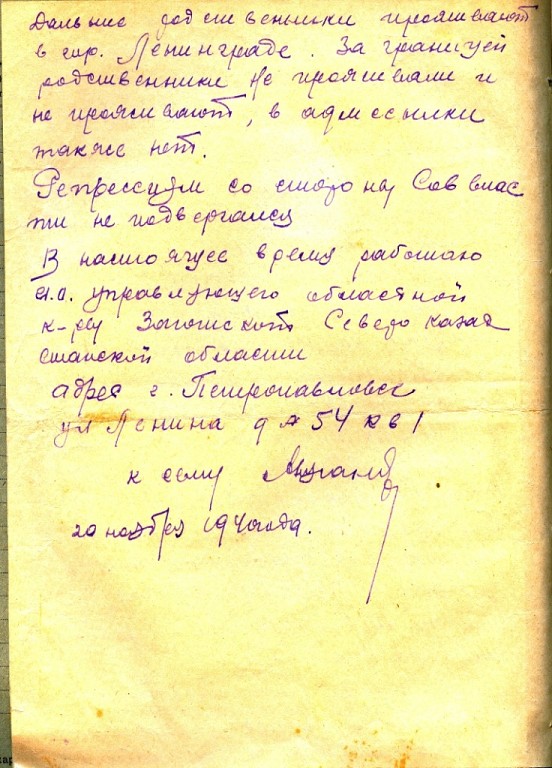 Дальние родственники проживают
в гор. Ленинграде. За границей
родственники не проживали и
не проживают, в адмссылки
также нет.
Репрессиям со стороны Соввлас
ти не подвергался
В настоящее время работаю
и.о. управляющего областной
к-ры Заготскот Северо казах
станской области
адрес г. Петропавловск
ул Ленина д № 54 кв 1
к сему
20 ноября 1940 года.